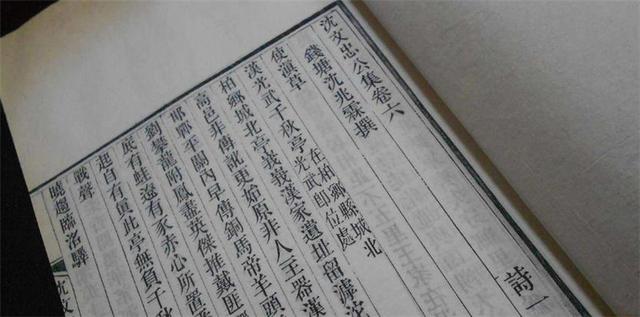 沈文忠公集卷六
錢塘沈兆霖撰
詩一
使滇草
漢光武千秋亭在柏鄉縣城北光武即位處
柏鄉城北亭峩峩漢家遺址留滹沱
高邑非傳訛更始原非人主器漢
邯鄲平關內早傳銅馬帝羊頭
劉攀龍附鳳盡英傑推戴匪
底有蛙遼有豕赤心所置
起自有真此亭無負千秋
戰聲
曉過臨洺驛
沈文